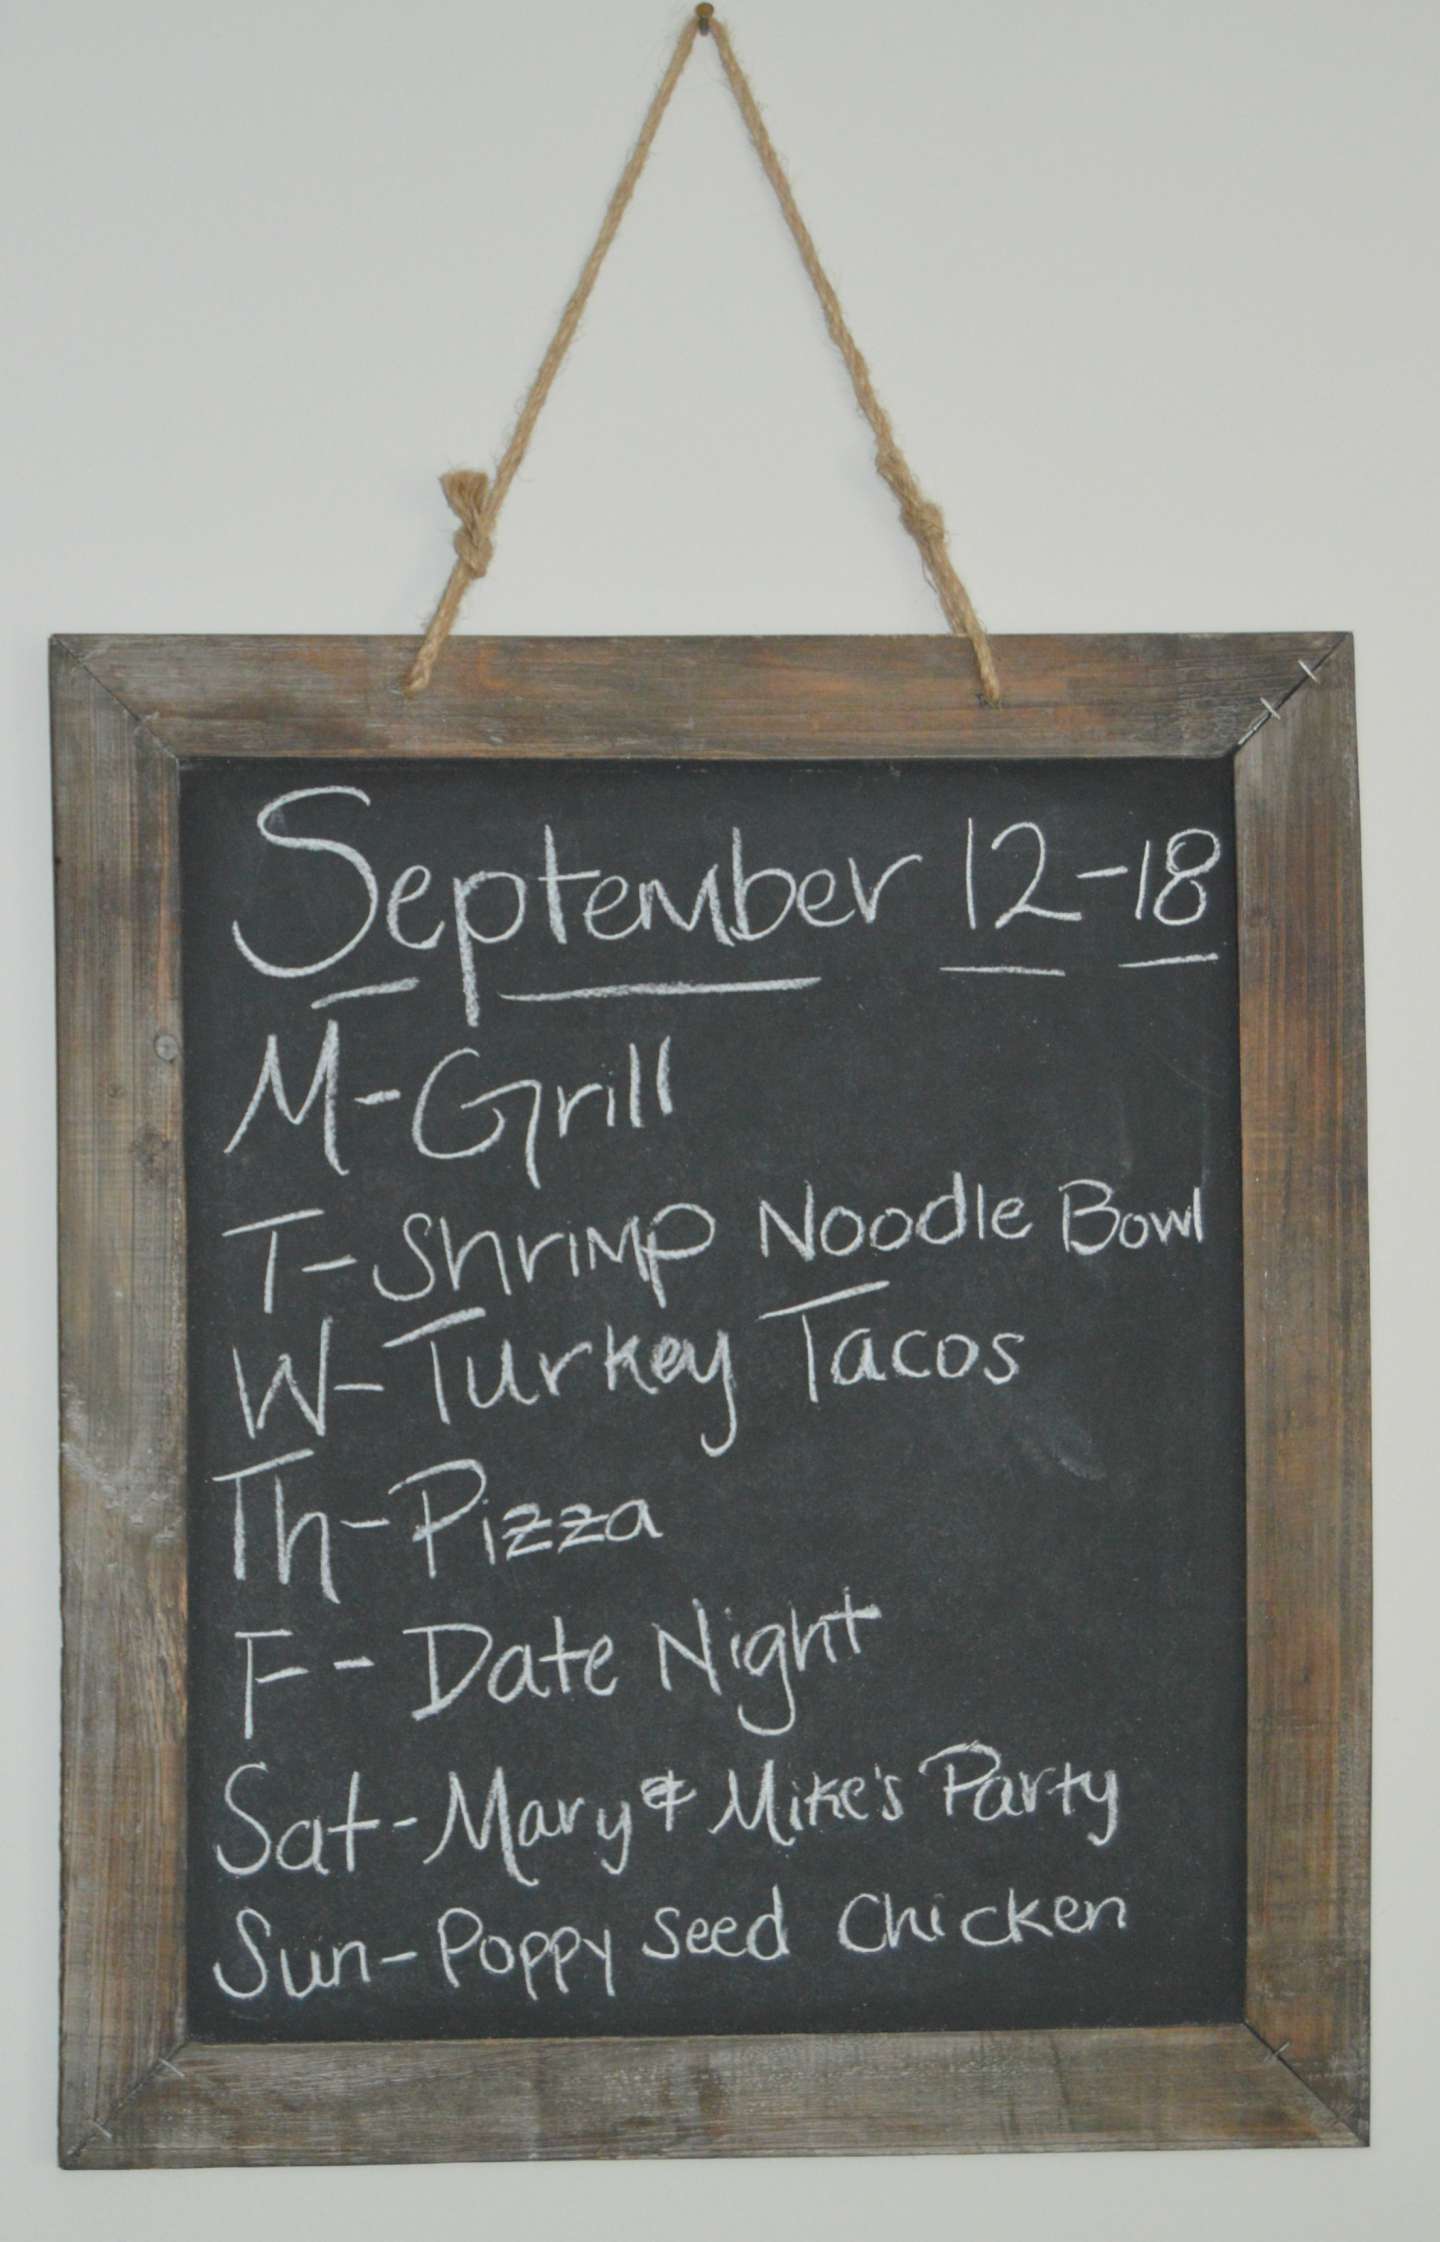 September 12-18
M-Grill
T-Shrimp Noodle Bowl
W-Turkey Tacos
Th-Pizza
F-Date Night
Sat-Mary & Mike's Party
Sun-Poppy Seed Chicken